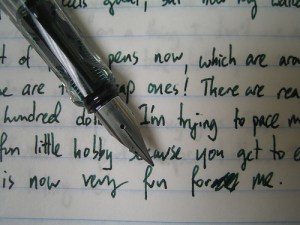 feels good, but now my
t of pens now, which are arou
e are cheap ones! There are rea
hundred doll I'm trying to pace m
fun little hobby because you get to e
is now very fun for me.